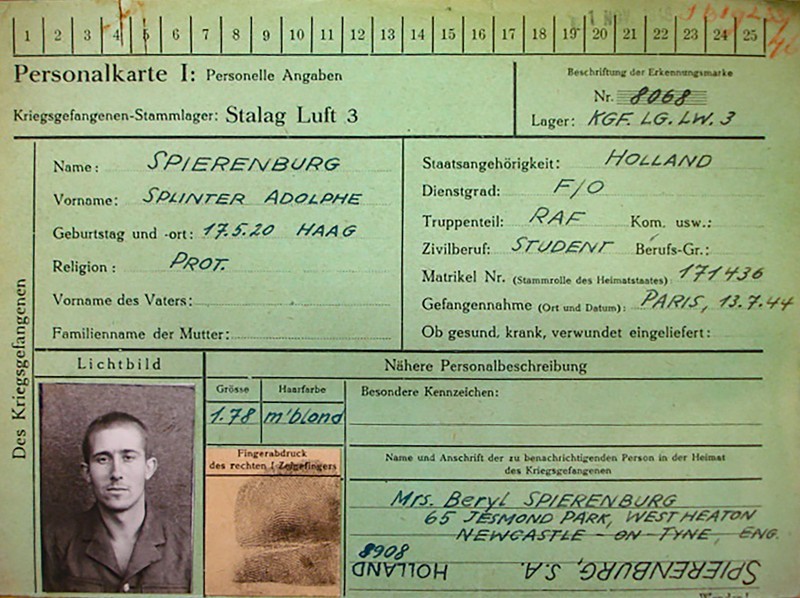 1 2 3 4 5 6 7 8 9 10 11 12 13 14 15 16 17 18 19 20 21 22 23 24 25
Personalkarte I: Personelle Angaben
Kriegsgefangenen-Stammlager: Stalag Luft 3
Beschriftung der Erkennungsmarke
Nr. 8068
Lager: KGF. LG. LW. 3
Des Kriegsgefangenen
Name: SPIERENBURG
Vorname: SPLINTER ADOLPHE
Geburtstag und -ort: 17.5.20 HAAG
Religion: PROT.
Vorname des Vaters:
Familienname der Mutter:
Staatsangehörigkeit: HOLLAND
Dienstgrad: F/O
Truppenteil: RAF Kom. usw.:
Zivilberuf: STUDENT Berufs-Gr.:
Matrikel Nr. (Stammrolle des Heimatstaates): 171436
Gefangennahme (Ort und Datum): PARIS, 13.7.44
Ob gesund, krank, verwundet eingeliefert:
Lichtbild
Nähere Personalbeschreibung
Grösse
1.78
Haarfarbe
m'blond
Besondere Kennzeichen:
Fingerabdruck
des rechten Zeigefingers
Name und Anschrift der zu benachrichtigenden Person in der Heimat
des Kriegsgefangenen
Mrs. Beryl SPIERENBURG
65 JESMOND PARK, WEST HEATON
NEWCASTLE - ON - TYNE, ENG.
8908
SPIERENBURG, S.A. HOLLAND